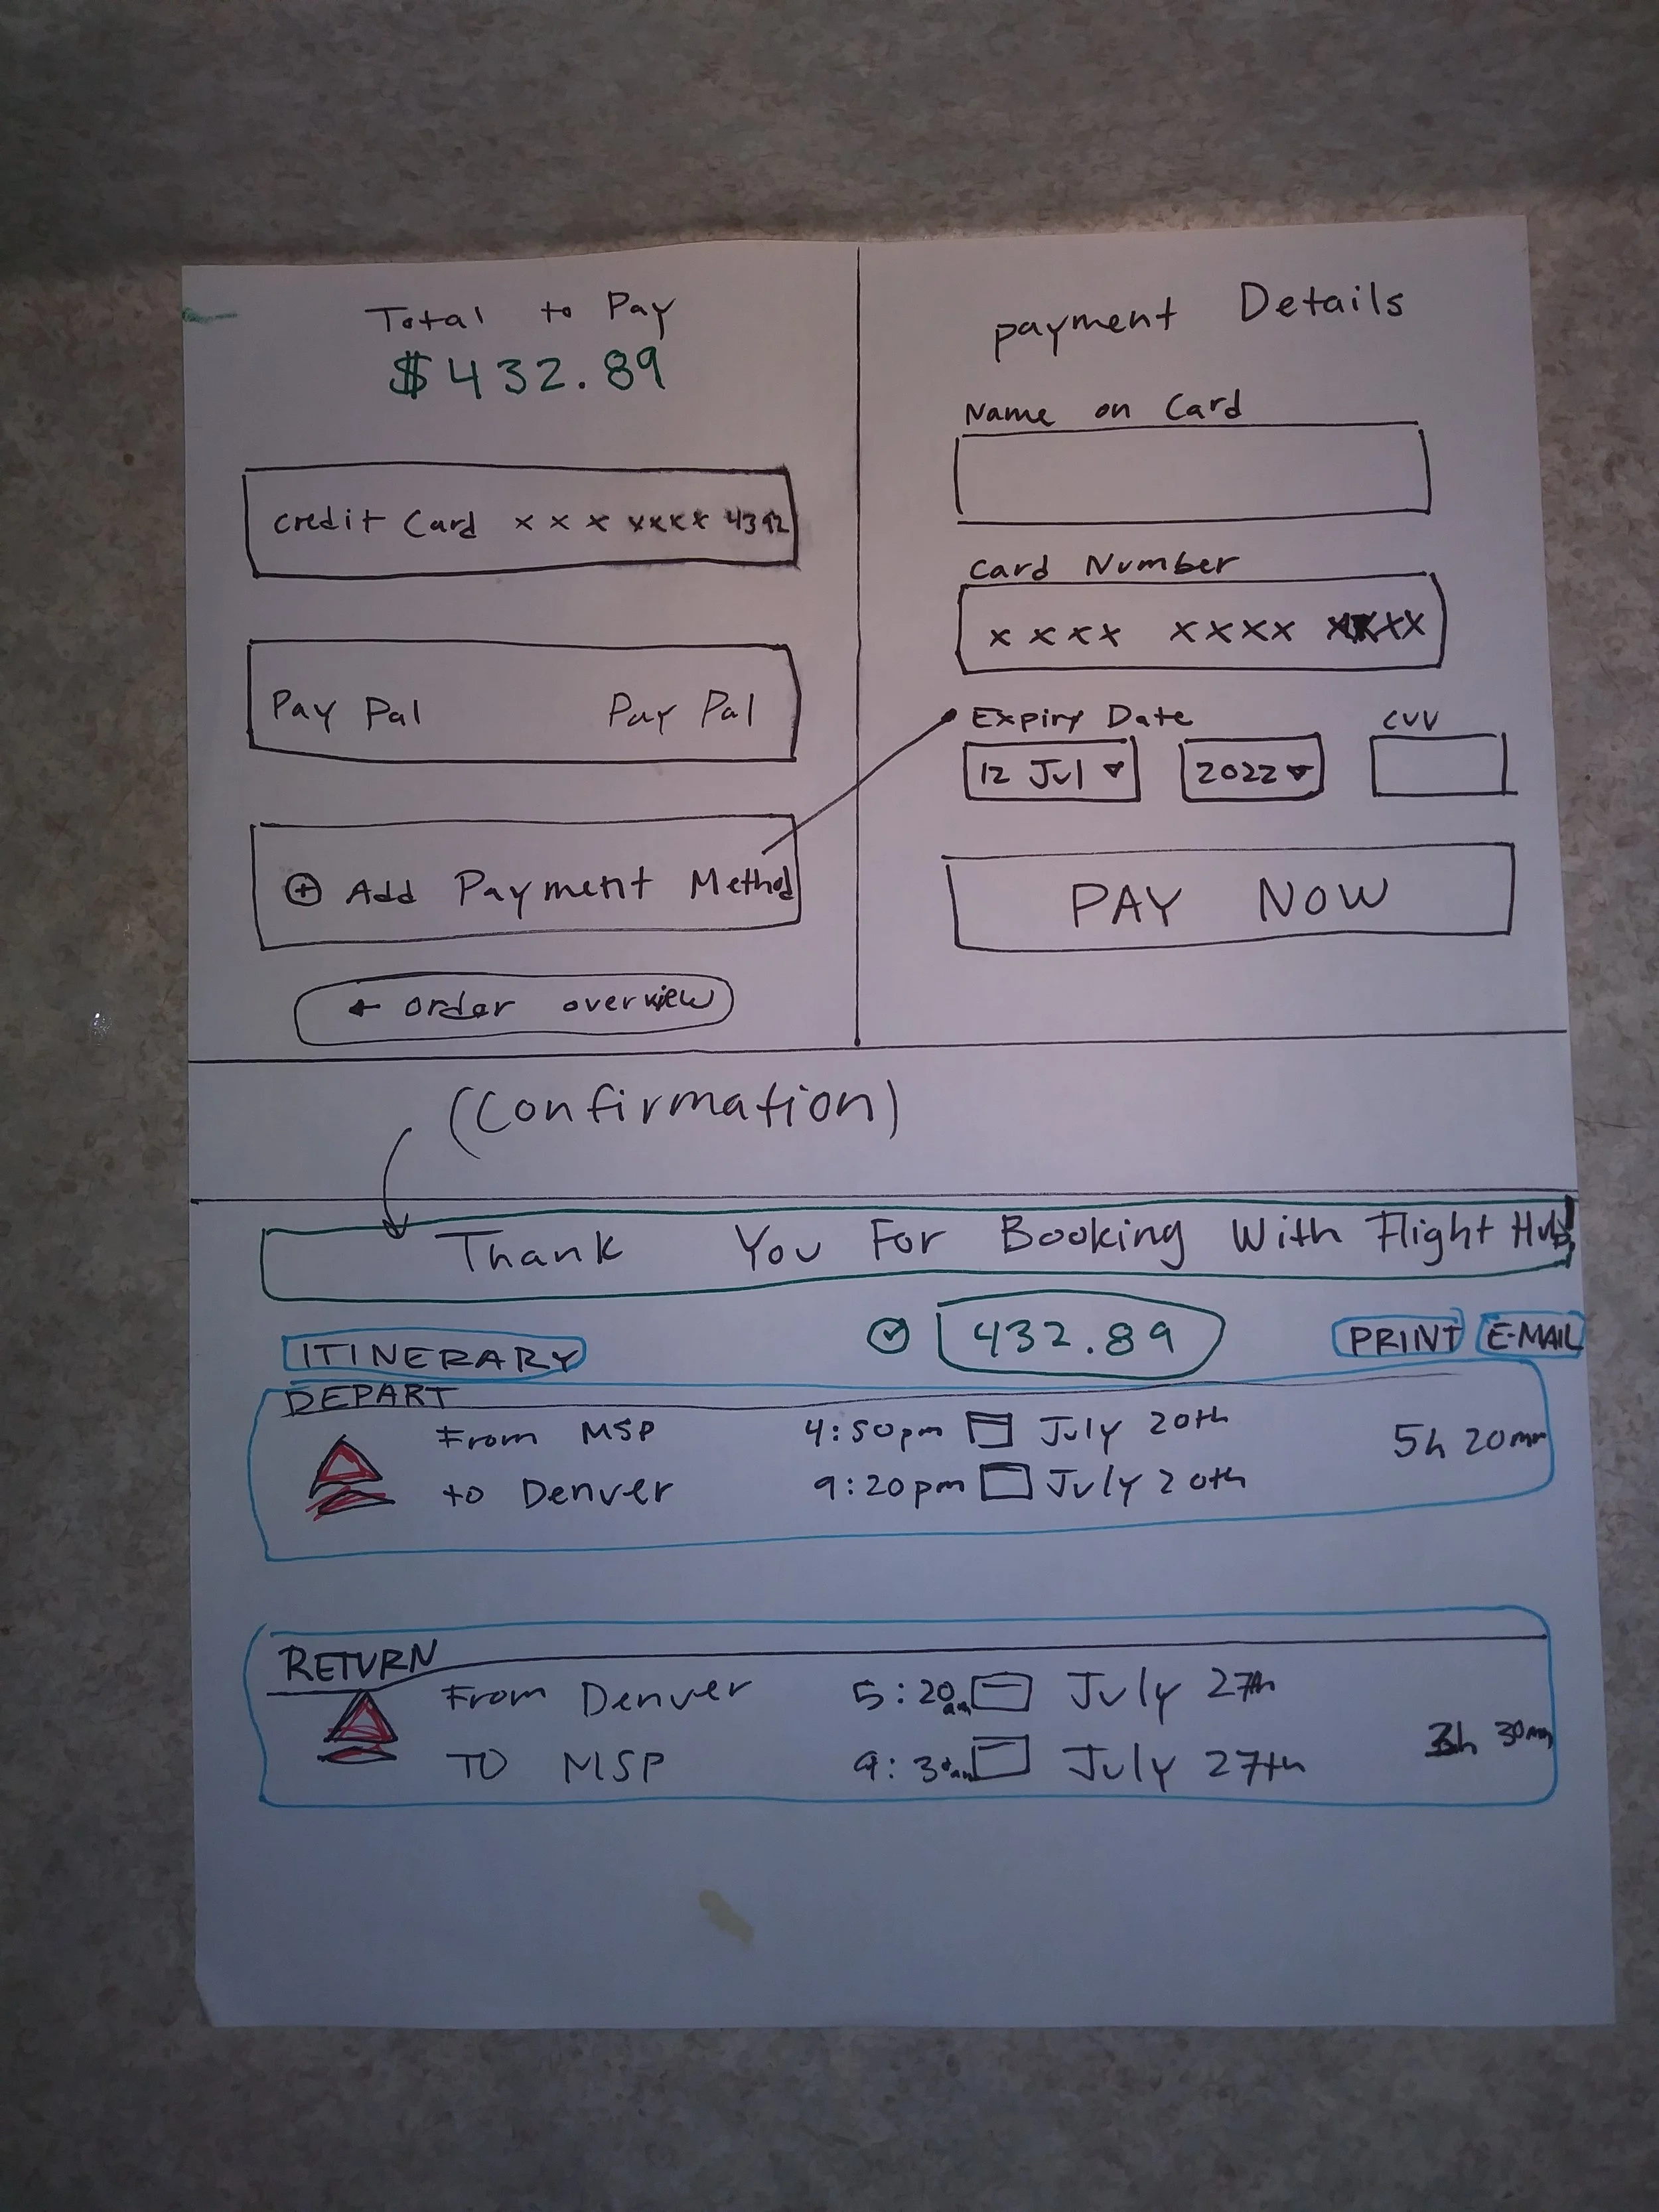 Total to Pay
$432.89
Credit Card x x x xxxx 4392
Pay Pal Pay Pal
+ Add Payment Method
← order overview
payment Details
Name on Card
Card Number
x x x x x x x x xxxx
Expiry Date CVV
12 Jul 2022
PAY NOW
(Confirmation)
Thank You For Booking With Flight Hub
ITINERARY 432.89 PRINT E-MAIL
DEPART
From MSP 4:50pm July 20th
to Denver 9:20pm July 20th
5h 20mm
RETURN
From Denver 5:20am July 27th
TO MSP 9:30am July 27th
3h 30mm